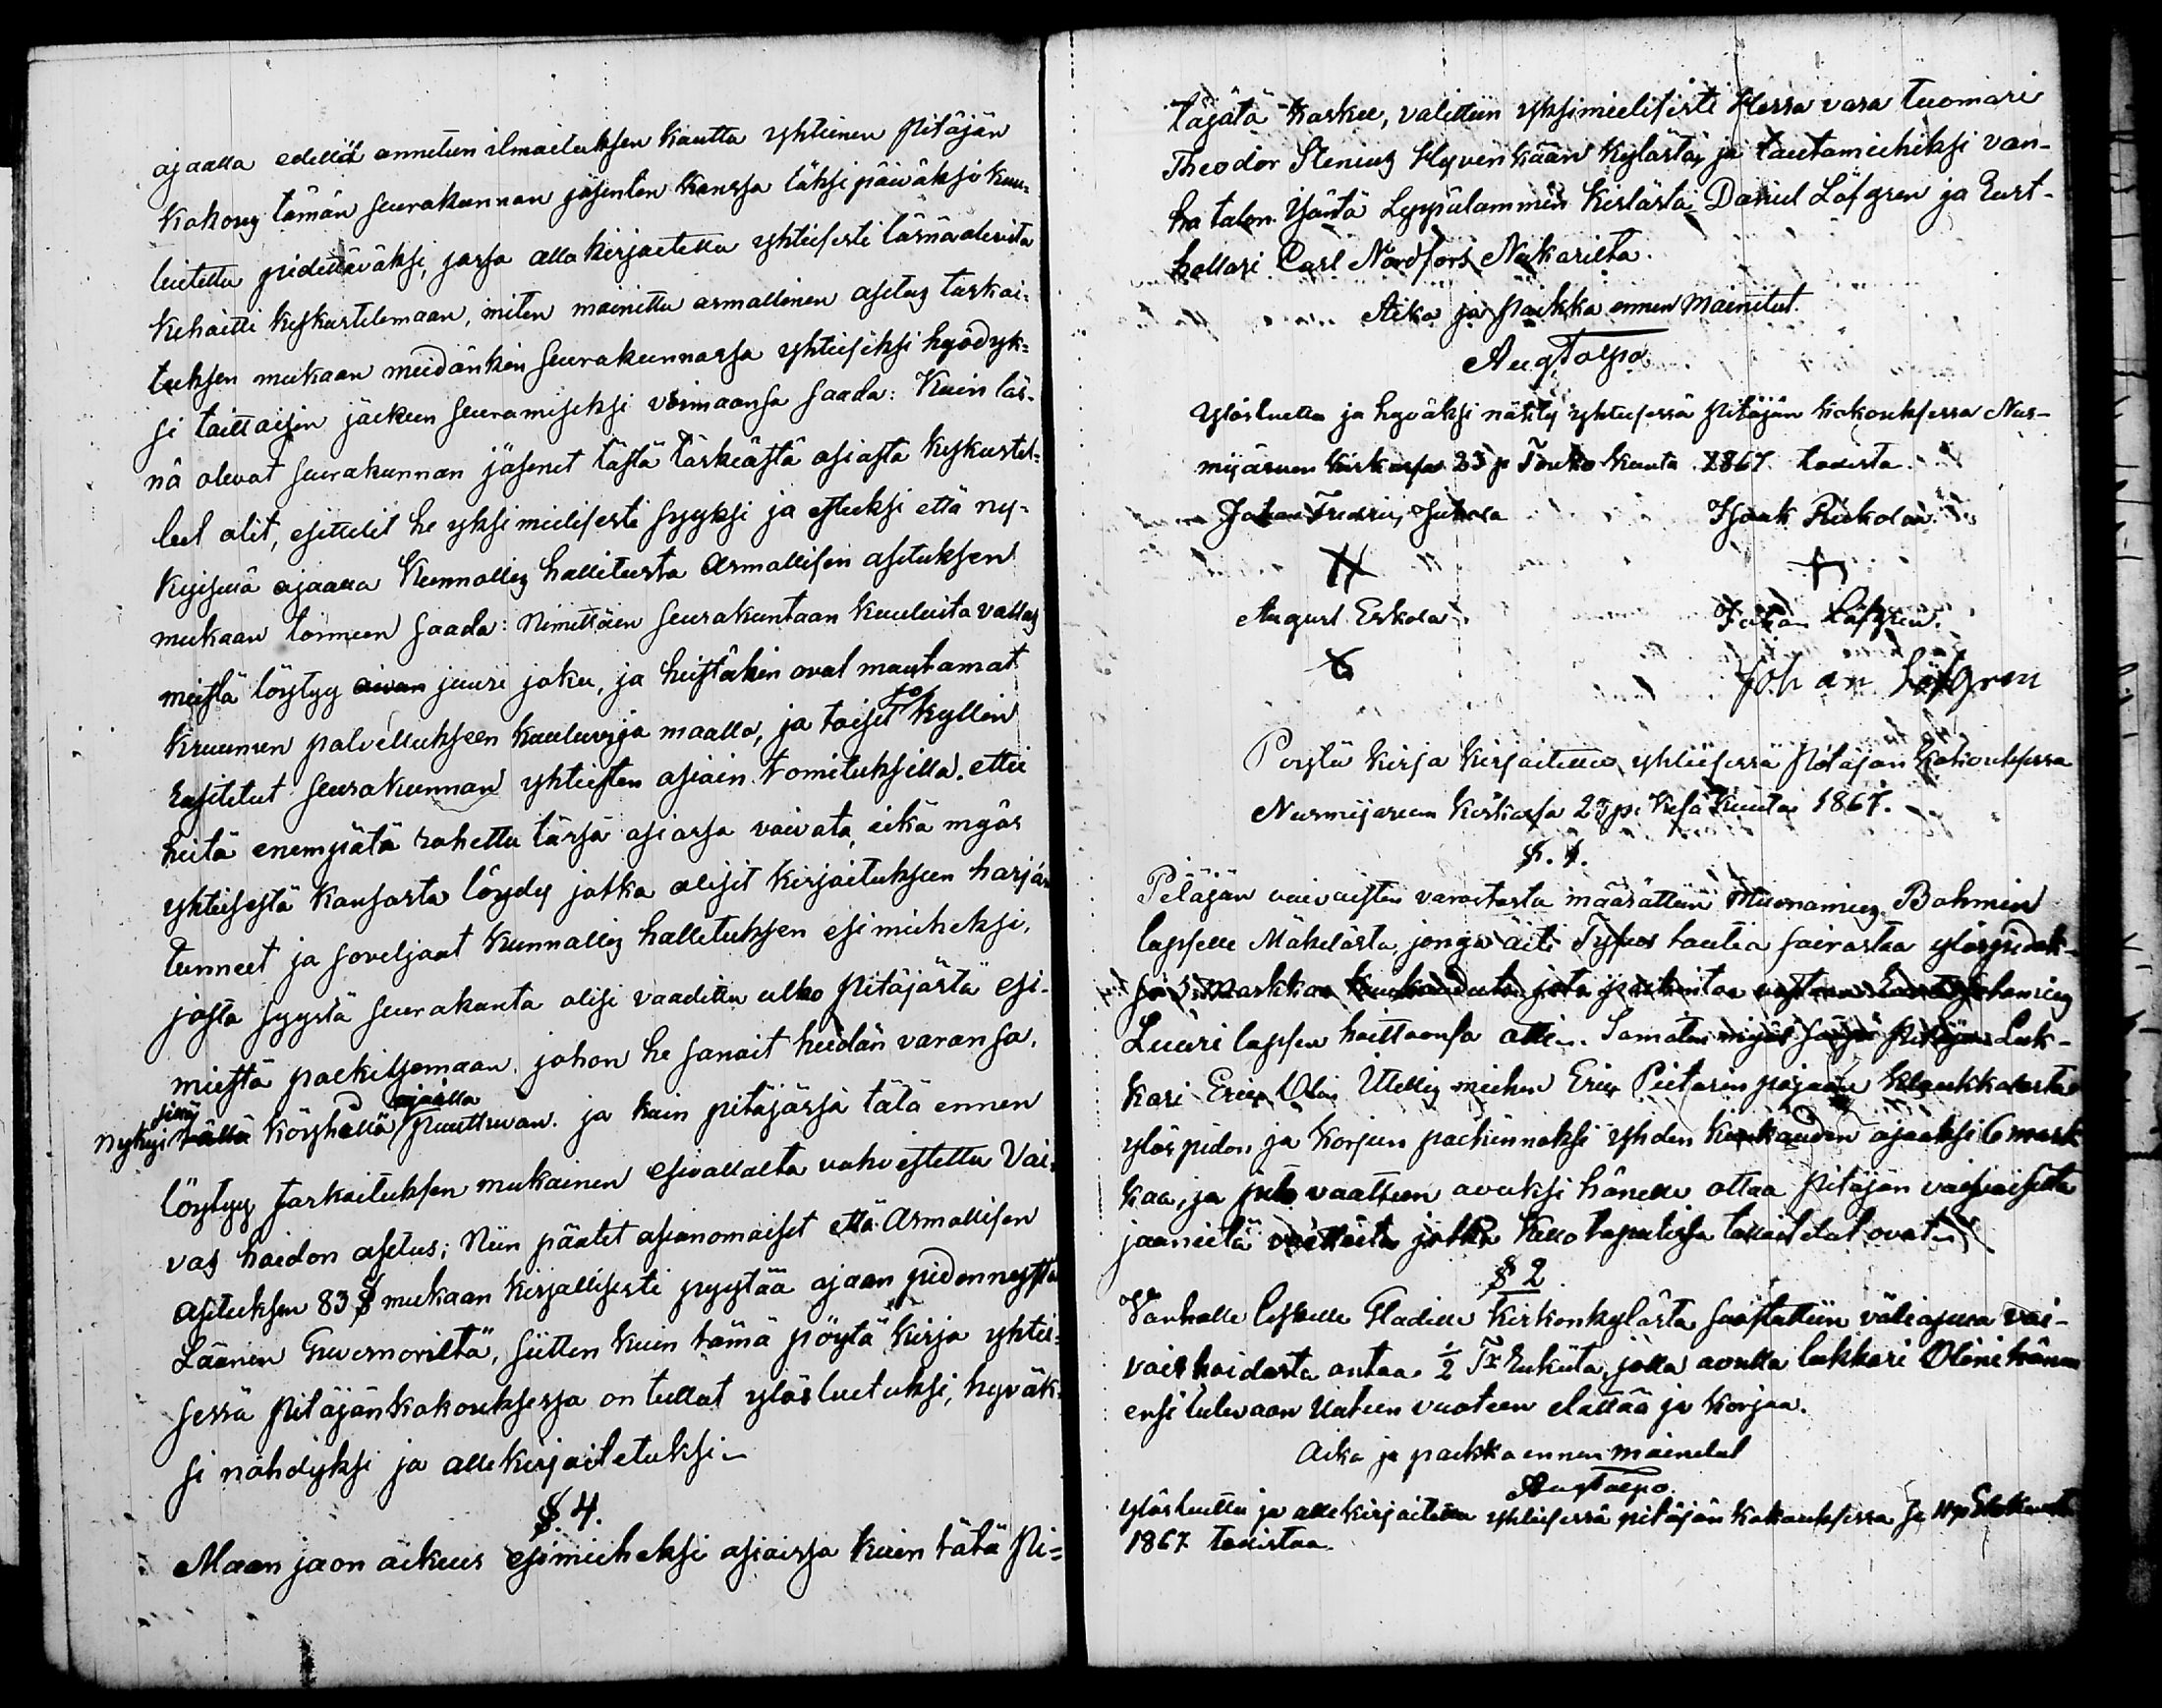 ajaalla edellä annetun ilmoituksen kautta yhteinen Pitäjän
kokous tämän seurakunnan jäsenten kanssa täksi päiwäksi kuu-
lutettu pidettäväksi, jossa allakirjoitettu yhteisesti läsnäolevita
kehoitti keskustelemaan, miten mainittu armollinen asetus tarkoi-
tuksen mukaan meidänkin seurakunnassa yhteiseksi hyödyk-
si taittaisin jäeken seuramiseksi voimaansa saada: Kuin läs-
nä olevat seurakunnan jäsenet tästä tärkeästä asiasta keskustel-
leet olit, esittelit he yksimielisesti syyksi ja esteeksi että ny-
kyisessä ajaalla Kunnallis hallitusta Armollisen asetuksen
mukaan toimeen saada: Nimittäin seurakuntaan kuuluita vallas
meistä löytyy aivan juuri joku, ja heistäkin ovat muutamat
kruunun palvellukseen kuuluvia maalla, ja toiset jo kyllin
rasitetut seurakunnan yhteisten asiain toimituksilla. ettei
heitä enempätä rohettu tässä asiassa vaivata, eikä myös
yhteisestä kansasta löydy jotka olisit kirjoitukseen harjan
tunneet ja soveljaat kunnallis hallituksen esimieheksi,
josta syystä seurakunta olisi vaadittu ulko Pitäjästä esi-
miestä palkitsemaan, johon he sanoit heidän varansa,
nykyi sillä tällä köyhällä ajaalla puuttuvan. ja kuin pitäjässä tätä ennen
löytyy tarkoituksen mukainen esivallalta vahvistettu Vai-
vas hoidon asetus; Niin päätit asianomaiset että Armollisen
asetuksen 83 § mukaan kirjallisesti pyytää ajaan pidennystä
Läänin Guvernöriltä, sitten kuin tämä pöytä kirja yhtei-
sessä Pitäjänkokouksessa on tullut ylösluetuksi, hyväk-
si nähdyksi ja allekirjoitetuksi.
§. 4.
Maan jaon oikeus esimieheksi asioissa kuin tätä Pi-
täjätä koskee, valittiin yksimielisesti Herra vara tuomari
Theodor Stenius Hyvinkään Kylästä, ja lautamieheksi van-
ha talon Isäntä Leppälammin Kylästä Daniel Löfgren ja Rust-
hollari Carl Nordfors Nukarilta.
Aika ja paikka ennen mainitut.
Aug Talpo.
Ylösluettu ja hyväksi nätty yhteisessä Pitäjän kokouksessa Nur-
mijärven kirkossa 23 p Touko kuuta 1867. todista.
Johan Fredric Juhola Isaak Rickola
August Eskola Johan Löfgren.
Johan Löfgren
Poytä kirja kirjoitettu yhteisessä Pitäjän kokouksessa
Nurmijärven kirkossa 23 p. Kesä kuuta 1867.
§. 1.
Pitäjän vaivaisten varastosta määrättiin Muonamies Bohmin
lapselle Mäkelästä, jonga äiti Tyfus tautia sairastaa ylöspidok-
si 5 Markkaa kuukaudeta, jota palkintoa vastaan
Luuri lapsen hoittoonsa otti. Samatin myös Pitäjän Luk-
kari Eric Olin Itellis miehen Eric Pietarin pojan Klaukkalasta
ylöspidon ja korjun palkinnoksi yhden kuukauden ajaaksi 6 mark
kaa, ja vaatteen avuksi hänelle ottaa Pitäjän vaivaisilta
jääneitä vaatteita jotka Kello tapulissa talletetut ovat.
§ 2
Vanhalle leskelle Gladille Kirkonkylästä suostuttiin väliajassa vai-
vais hoidosta antaa ½ Tr Rukiita, jolla avulla lukkari Olin hänen
ensi tulevaan Uuteen vuoteen elättää ja korjaa.
Aika ja paikka ennen mainitut
Aug Talpo.
Ylösluettu ja allekirjoitettu yhteisessä pitäjän kokouksessa
1867. todistaa.